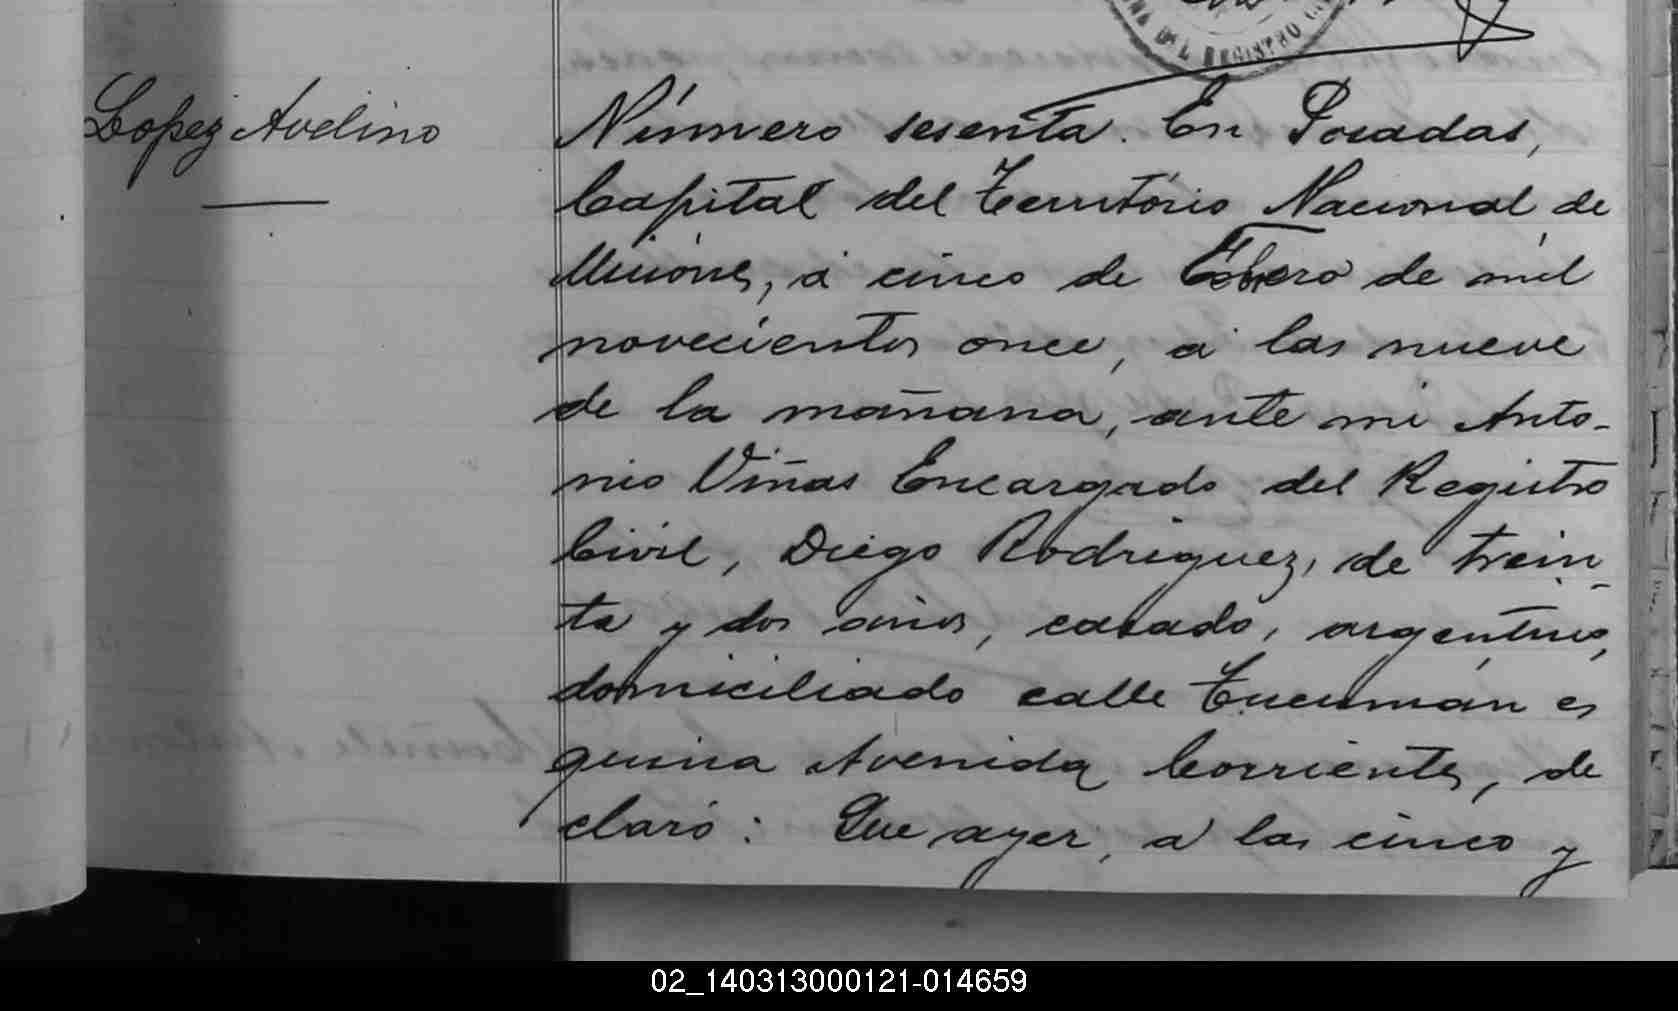 NA DEL REGISTRO CI
Lopez Avelino
Número sesenta. En Posadas,
Capital del Território Nacional de
Misiónes, á cinco de Febrero de mil
novecientos once, á las nueve
de la mañana, ante mi Anto-
nio Viñas Encargado del Registro
Civil, Diego Rodriguez, de trein
ta y dos años, casado, argentino,
domiciliado calle Tucumán es
quina Avenida Corrientes, de
claró: Que ayer, á las cinco y
02_140313000121-014659